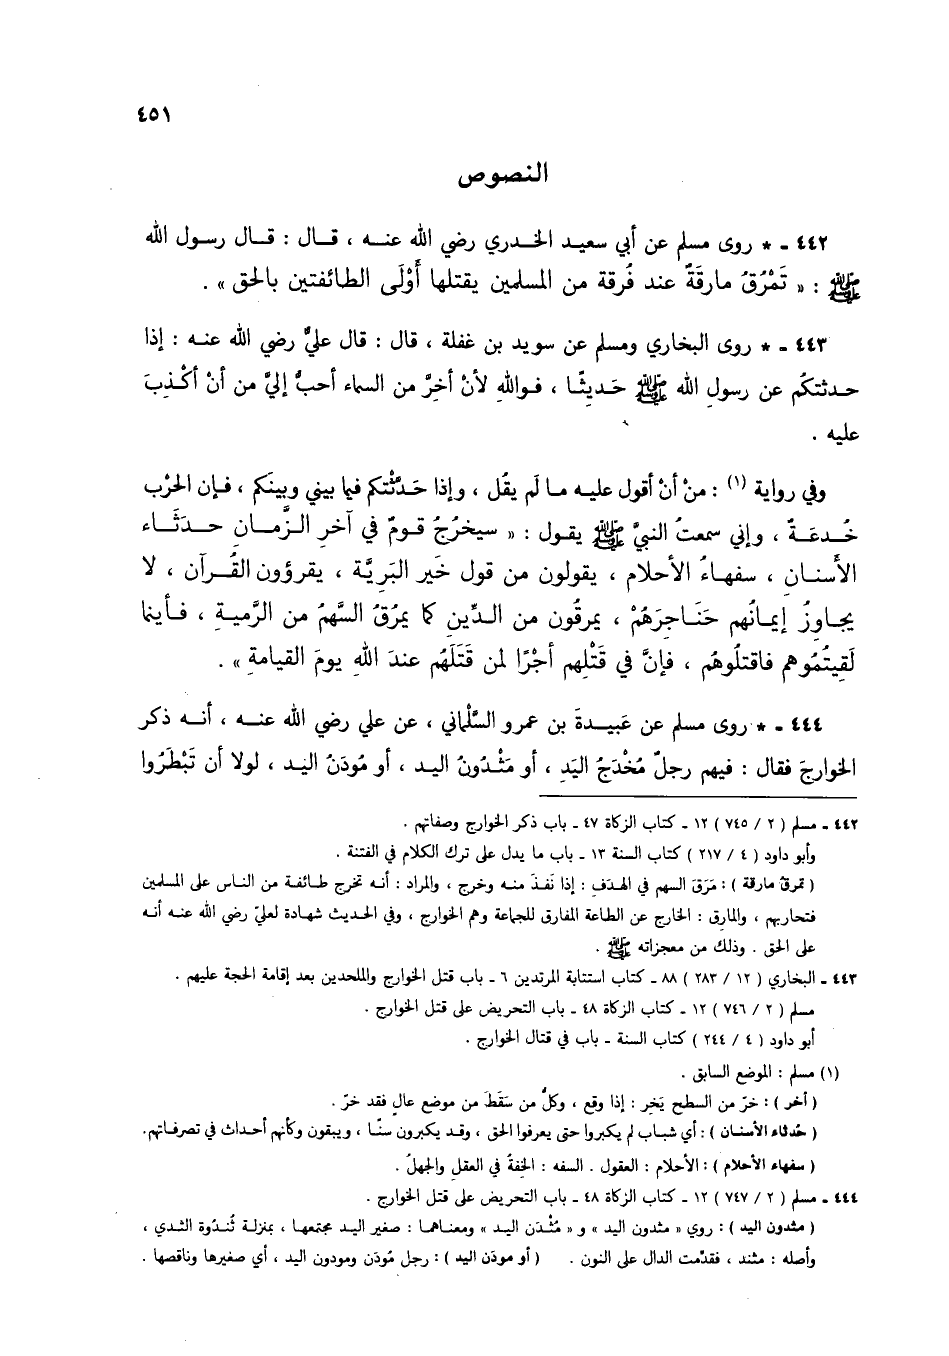 ٤٥١
النصوص
٤٤٢ ـ * روى مسلم عن أبي سعيد الخدري رضي الله عنه ، قال : قال رسول الله
ﷺ : « تَمْرُقُ مارقَةٌ عند فُرقة من المسلمين يقتلها أَوْلَى الطائفتين بالحق » .
٤٤٣ ـ * روى البخاري ومسلم عن سويد بن غفلة ، قال : قال عليٌّ رضي الله عنه : إذا
حدثتكُم عن رسولِ الله ﷺ حَديثًا ، فوالله لأنْ أخِرَّ من السماء أحبُّ إليَّ من أنْ أكْذِبَ
عليه .
وفي رواية (١) : منْ أنْ أقولَ عليه ما لَم يقُل ، وإذا حَدَّثْتكم فيما بيني وبينَكم ، فإن الحَرْب
خُدعَةٌ ، وإني سمعتُ النبيَّ ﷺ يقول : « سيخرُجُ قومٌ في آخر الزَّمان حدَثَاء
الأسنان ، سفهاءُ الأحلام ، يقولون من قول خَير البَريَّة ، يقرؤون القُرآن ، لا
يجاوزُ إيمانُهم حَنَاجرَهُمْ ، يمرقُون من الدِّين كما يمرُقُ السَّهمُ من الرَّمية ، فأينما
لَقِيتُمُوهم فاقتلُوهُم ، فإنَّ في قَتْلِهم أجْرًا لمن قَتَلَهُم عندَ اللهِ يومَ القيامةِ » .
٤٤٤ ـ * روى مسلم عن عَبيدةَ بن عمرو السَّلْماني ، عن علي رضي الله عنه ، أنه ذكر
الخوارجَ فقال : فيهم رجلٌ مُخْدَجُ اليَدِ ، أو مَثْدُونُ اليد ، أو مُودَنُ اليد ، لولا أن تَبْطَرُوا
٤٤٢ ـ مسلم ( ٢ / ٧٤٥ ) ١٢ ـ كتاب الزكاة ٤٧ ـ باب ذكر الخوارج وصفاتهم .
وأبو داود ( ٤ / ٢١٧ ) كتاب السنة ١٣ ـ باب ما يدل على ترك الكلام في الفتنة .
( تمرقُ مارقة ) : مَرَقَ السهم في الهَدَفِ : إذا نَفَذَ منه وخرج ، والمراد : أنه تخرج طائفة من الناس على المسلمين
فتحاربهم ، والمارق : الخارج عن الطاعة المفارق للجماعة وهم الخوارج ، وفي الحديث شهادة لعليّ رضي الله عنه أنه
على الحق . وذلك من معجزاته ﷺ .
٤٤٣ ـ البخاري ( ١٢ / ٢٨٣ ) ٨٨ ـ كتاب استتابة المرتدين ٦ ـ باب قتل الخوارج والملحدين بعد إقامة الحجة عليهم .
مسلم ( ٢ / ٧٤٦ ) ١٢ ـ كتاب الزكاة ٤٨ ـ باب التحريض على قتل الخوارج .
أبو داود ( ٤ / ٢٤٤ ) كتاب السنة ـ باب في قتال الخوارج .
(١) مسلم : الموضع السابق .
( أخر ) : خرّ من السطح يَخِر : إذا وقع ، وكلُّ من سَقَطَ من موضع عالٍ فقد خرّ .
( حُدثاء الأسنان ) : أي شباب لم يكبروا حتى يعرفوا الحق ، وقد يكبرون سنًّا ، ويبقون وكأنهم أحداث في تصرفاتهم.
( سفهاء الأحلام ) : الأحلام : العقول . السفه : الخِفةُ في العقل والجهلُ .
٤٤٤ ـ مسلم ( ٢ / ٧٤٧ ) ١٢ ـ كتاب الزكاة ٤٨ ـ باب التحريض على قتل الخوارج .
( مثدون اليد ) : روي « مثدون اليد » و « مُثْدَن اليد » ومعناهما : صغير اليد مجتمعها ، بمنزلة ثُندُوَة الثدي ،
وأصله : مثند ، فقدّمت الدال على النون . ( أو موذَن اليد ) : رجل مُوذَن ومودون اليد ، أي صغيرها وناقصها .